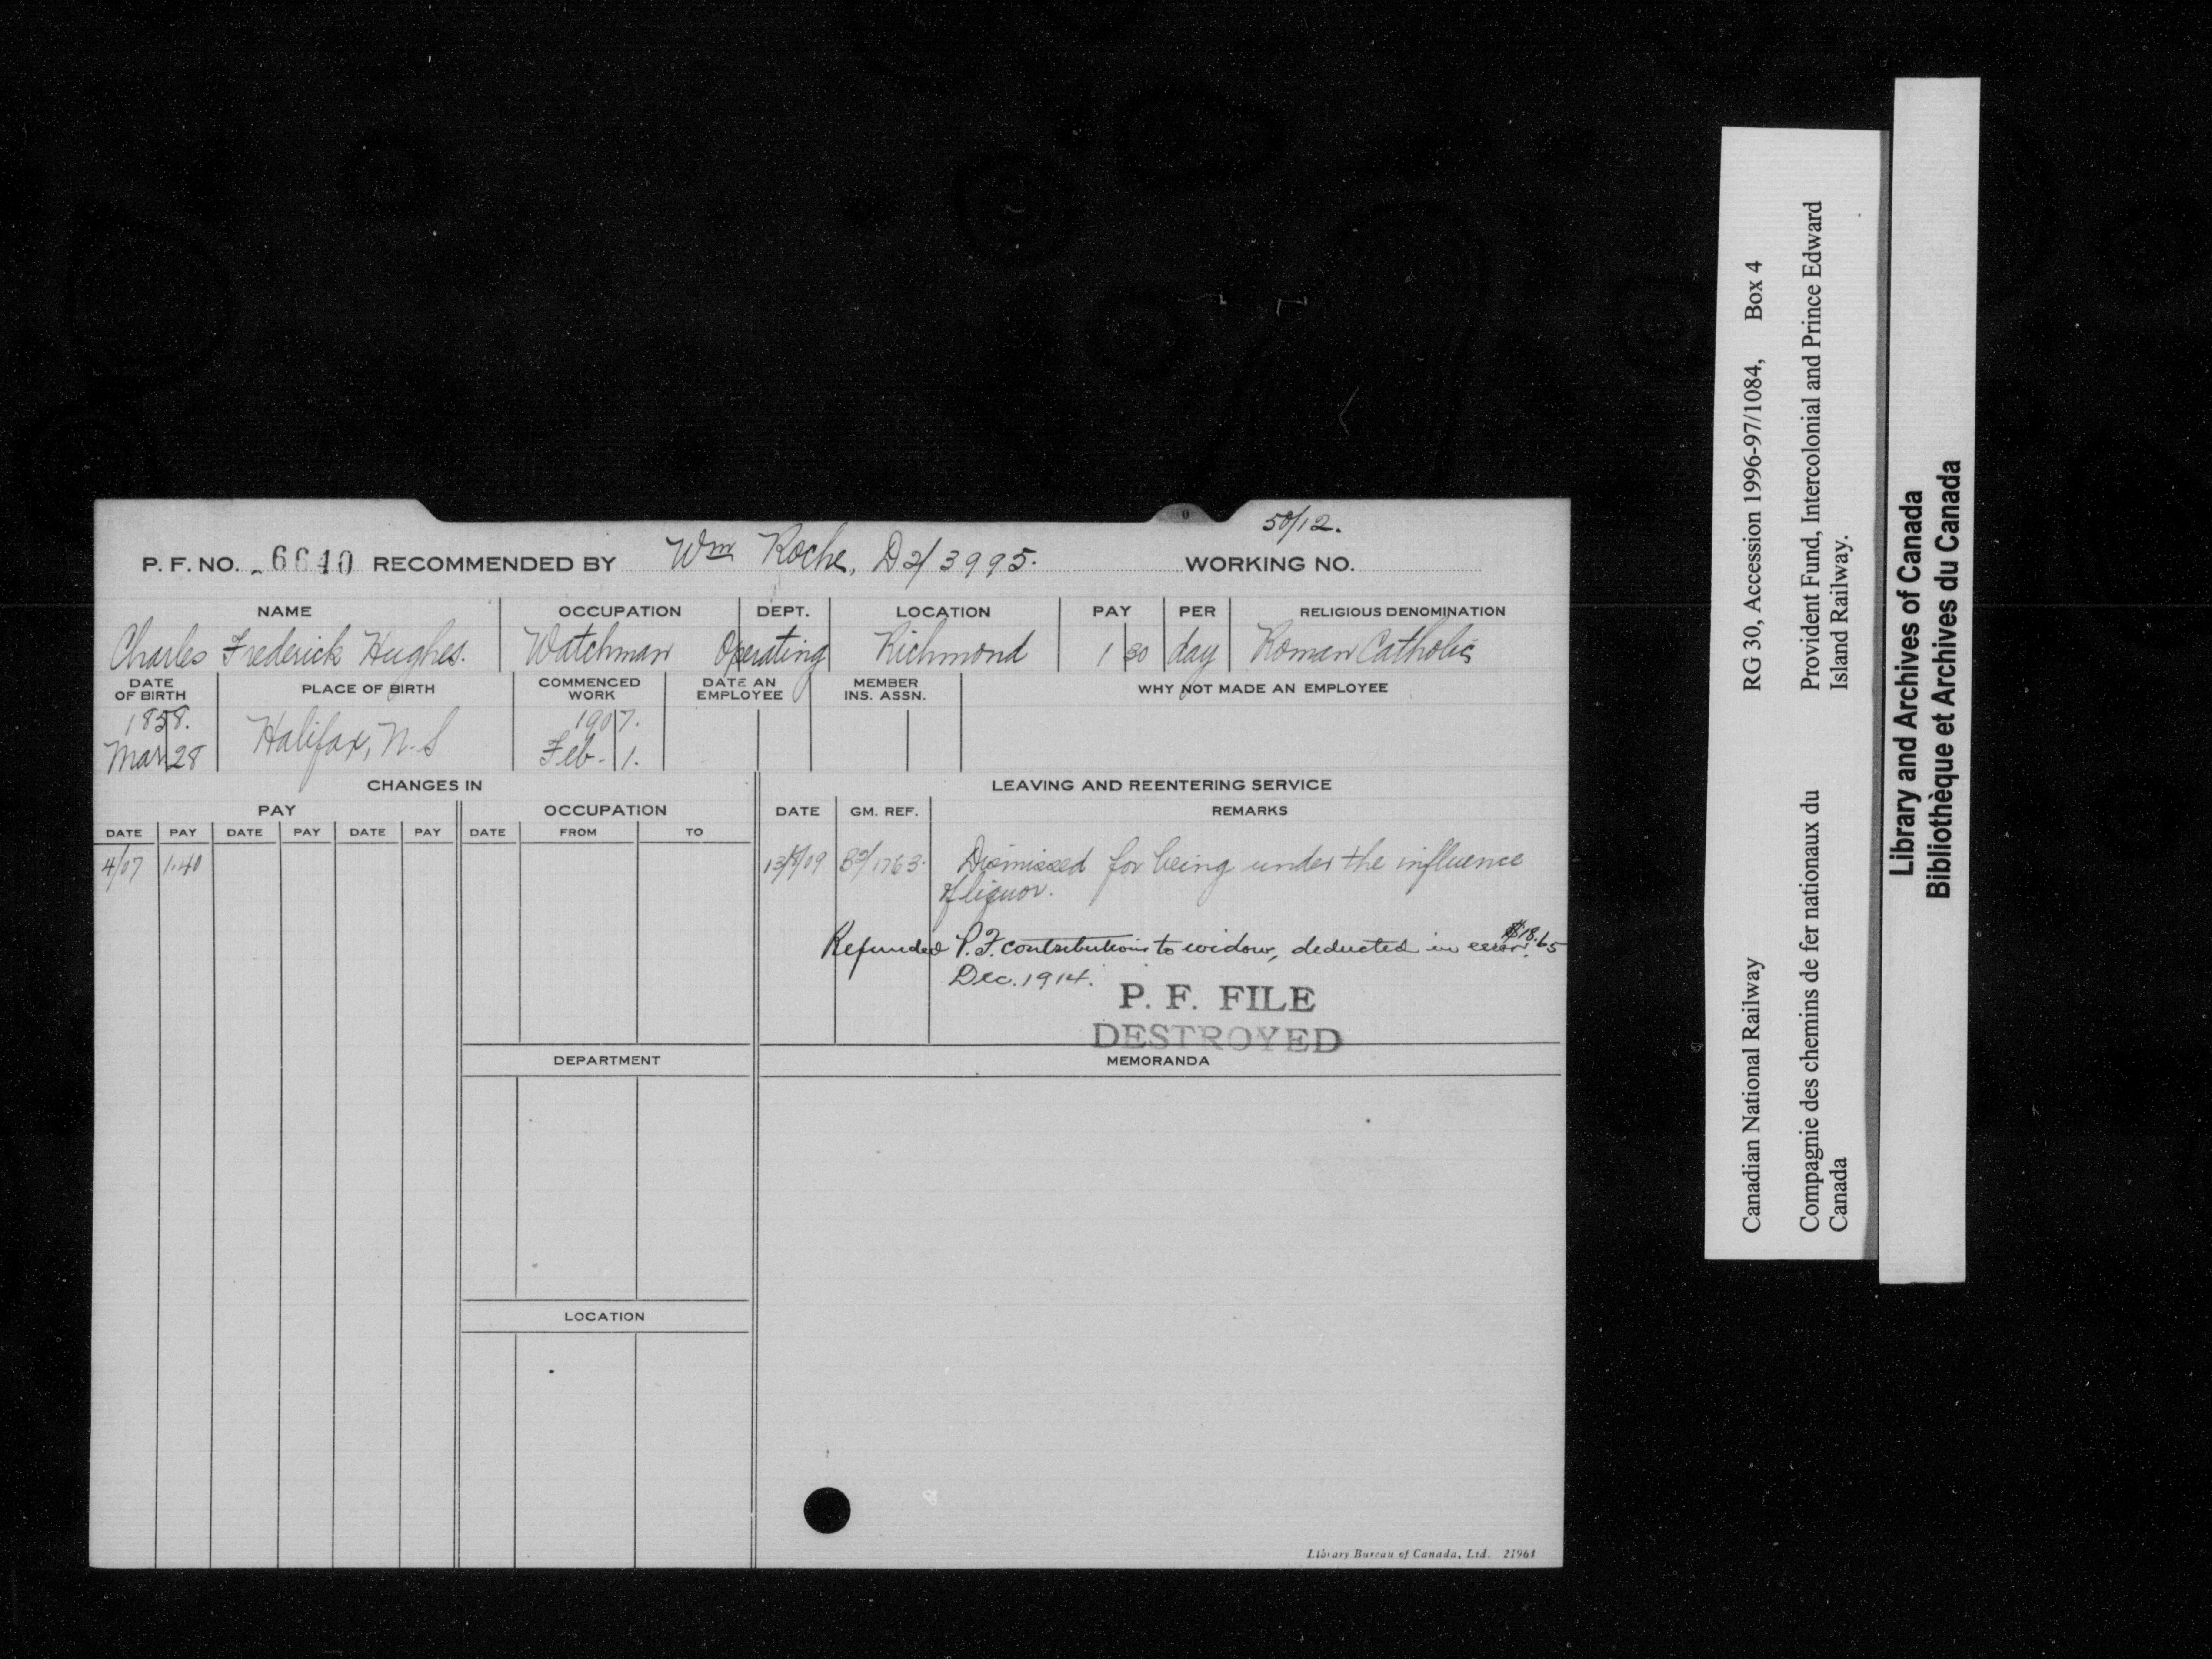 50/12.
P. F. NO. 6640 RECOMMENDED BY Wm Roche, D2/3995. WORKING NO.
NAME OCCUPATION DEPT. LOCATION PAY PER RELIGIOUS DENOMINATION
Charles Frederick Hughes. Watchman Operating Richmond 1 30 day Roman Catholic
DATE OF BIRTH PLACE OF BIRTH COMMENCED WORK DATE AN EMPLOYEE MEMBER INS. ASSN. WHY NOT MADE AN EMPLOYEE
1858. Halifax, N.S 1907.
Mar 28 Feb. 1.
CHANGES IN LEAVING AND REENTERING SERVICE
PAY OCCUPATION DATE GM. REF. REMARKS
DATE PAY DATE PAY DATE PAY DATE FROM TO
4/07 1.40 13/8/09 82/1763. Dismissed for being under the influence
of liquor.
Refunded P.F. contributions to widow, deducted in error. $18.65
Dec. 1914.
P. F. FILE
DESTROYED
DEPARTMENT MEMORANDA
LOCATION
Library Bureau of Canada, Ltd. 21961
Canadian National Railway RG 30, Accession 1996-97/1084, Box 4
Compagnie des chemins de fer nationaux du Provident Fund, Intercolonial and Prince Edward
Canada Island Railway.
Library and Archives of Canada
Bibliothèque et Archives du Canada